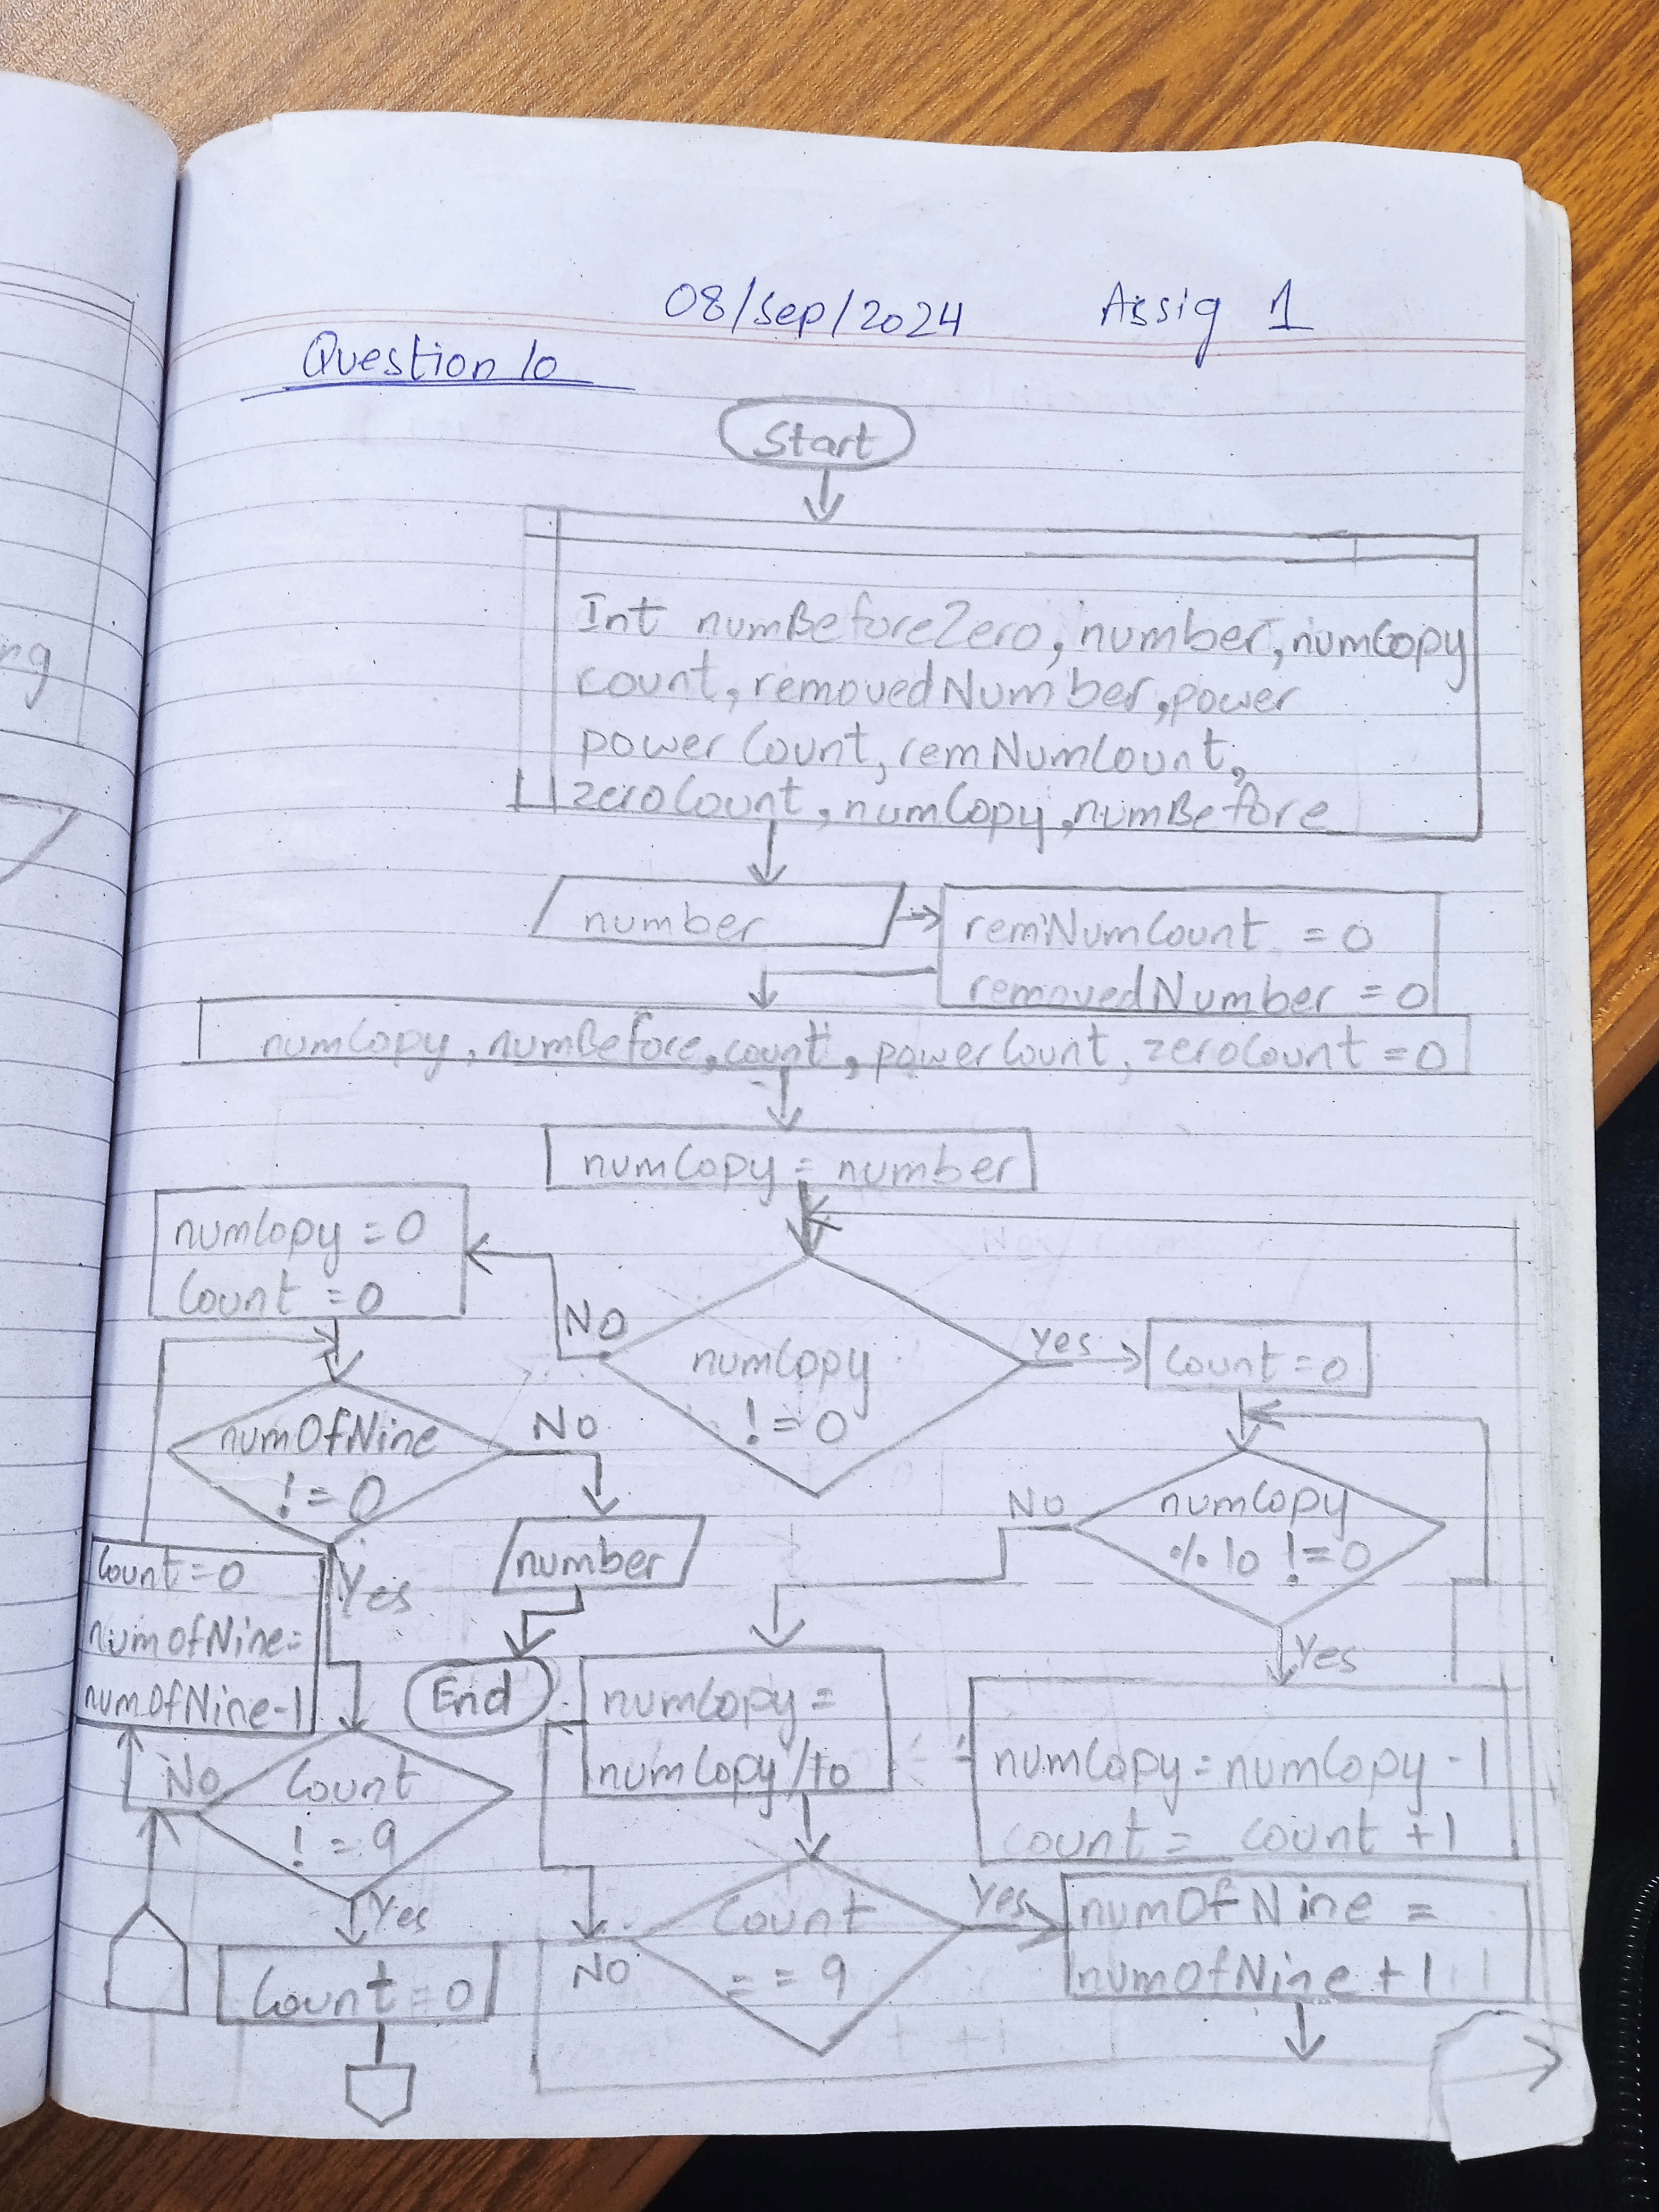 ng
08/Sep/2024 Assig 1
Question 10
Start
Int numBeforeZero, number, numCopy
count, removedNumber, power
powerCount, remNumCount,
zeroCount, numCopy, numBefore
number
remNumCount = 0
removedNumber = 0
numCopy, numBefore, count, powerCount, zeroCount = 0
numCopy = number
numCopy = 0
Count = 0
No
numCopy
!= 0
Yes
Count = 0
numOfNine
!= 0
No
number
End
Yes
Count = 0
numOfNine =
numOfNine-1
No
numCopy
% 10 != 0
Yes
numCopy =
numCopy/10
numCopy = numCopy - 1
count = count + 1
No
Count
! = 9
Yes
Count = 0
Count
= = 9
No
Yes
numOfNine =
numOfNine + 1